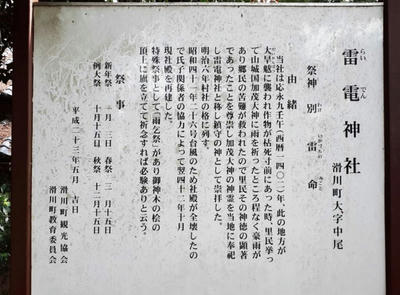 らい でん
雷電神社
滑川町大字中尾
わけ いかづちの みこと
祭神 別雷命
由緒
当社は応永九年壬午(西暦一四〇二)年、此の地方が
大旱魃に襲われ作物が枯死寸前にあった時、里民挙っ
て山城国加茂大神に雨を祈ったところ程なく豪雨が
あり郷民の苦難が救われたので里民その神徳の顕著
であったことを尊崇し加茂大神の神霊を当地に奉祀
し雷電神社と称し鎮守の神として崇拝した。
明治六年村社の格に列す。
昭和四十一年二十六号台風のため社殿が全壊したの
で氏子関係者の協力によって翌四十二年十月
現社殿を再建した。
特殊祭事として「雨乞祭」があり御神木の桧の
頂上に旗を立てて祈念すれば必験ありと云う。
祭事
新年祭 一月三日 春祭 二月十五日
例大祭 十月十五日 秋祭 十二月十五日
平成二十三年五月 吉日
滑川町観光協会
滑川町教育委員会